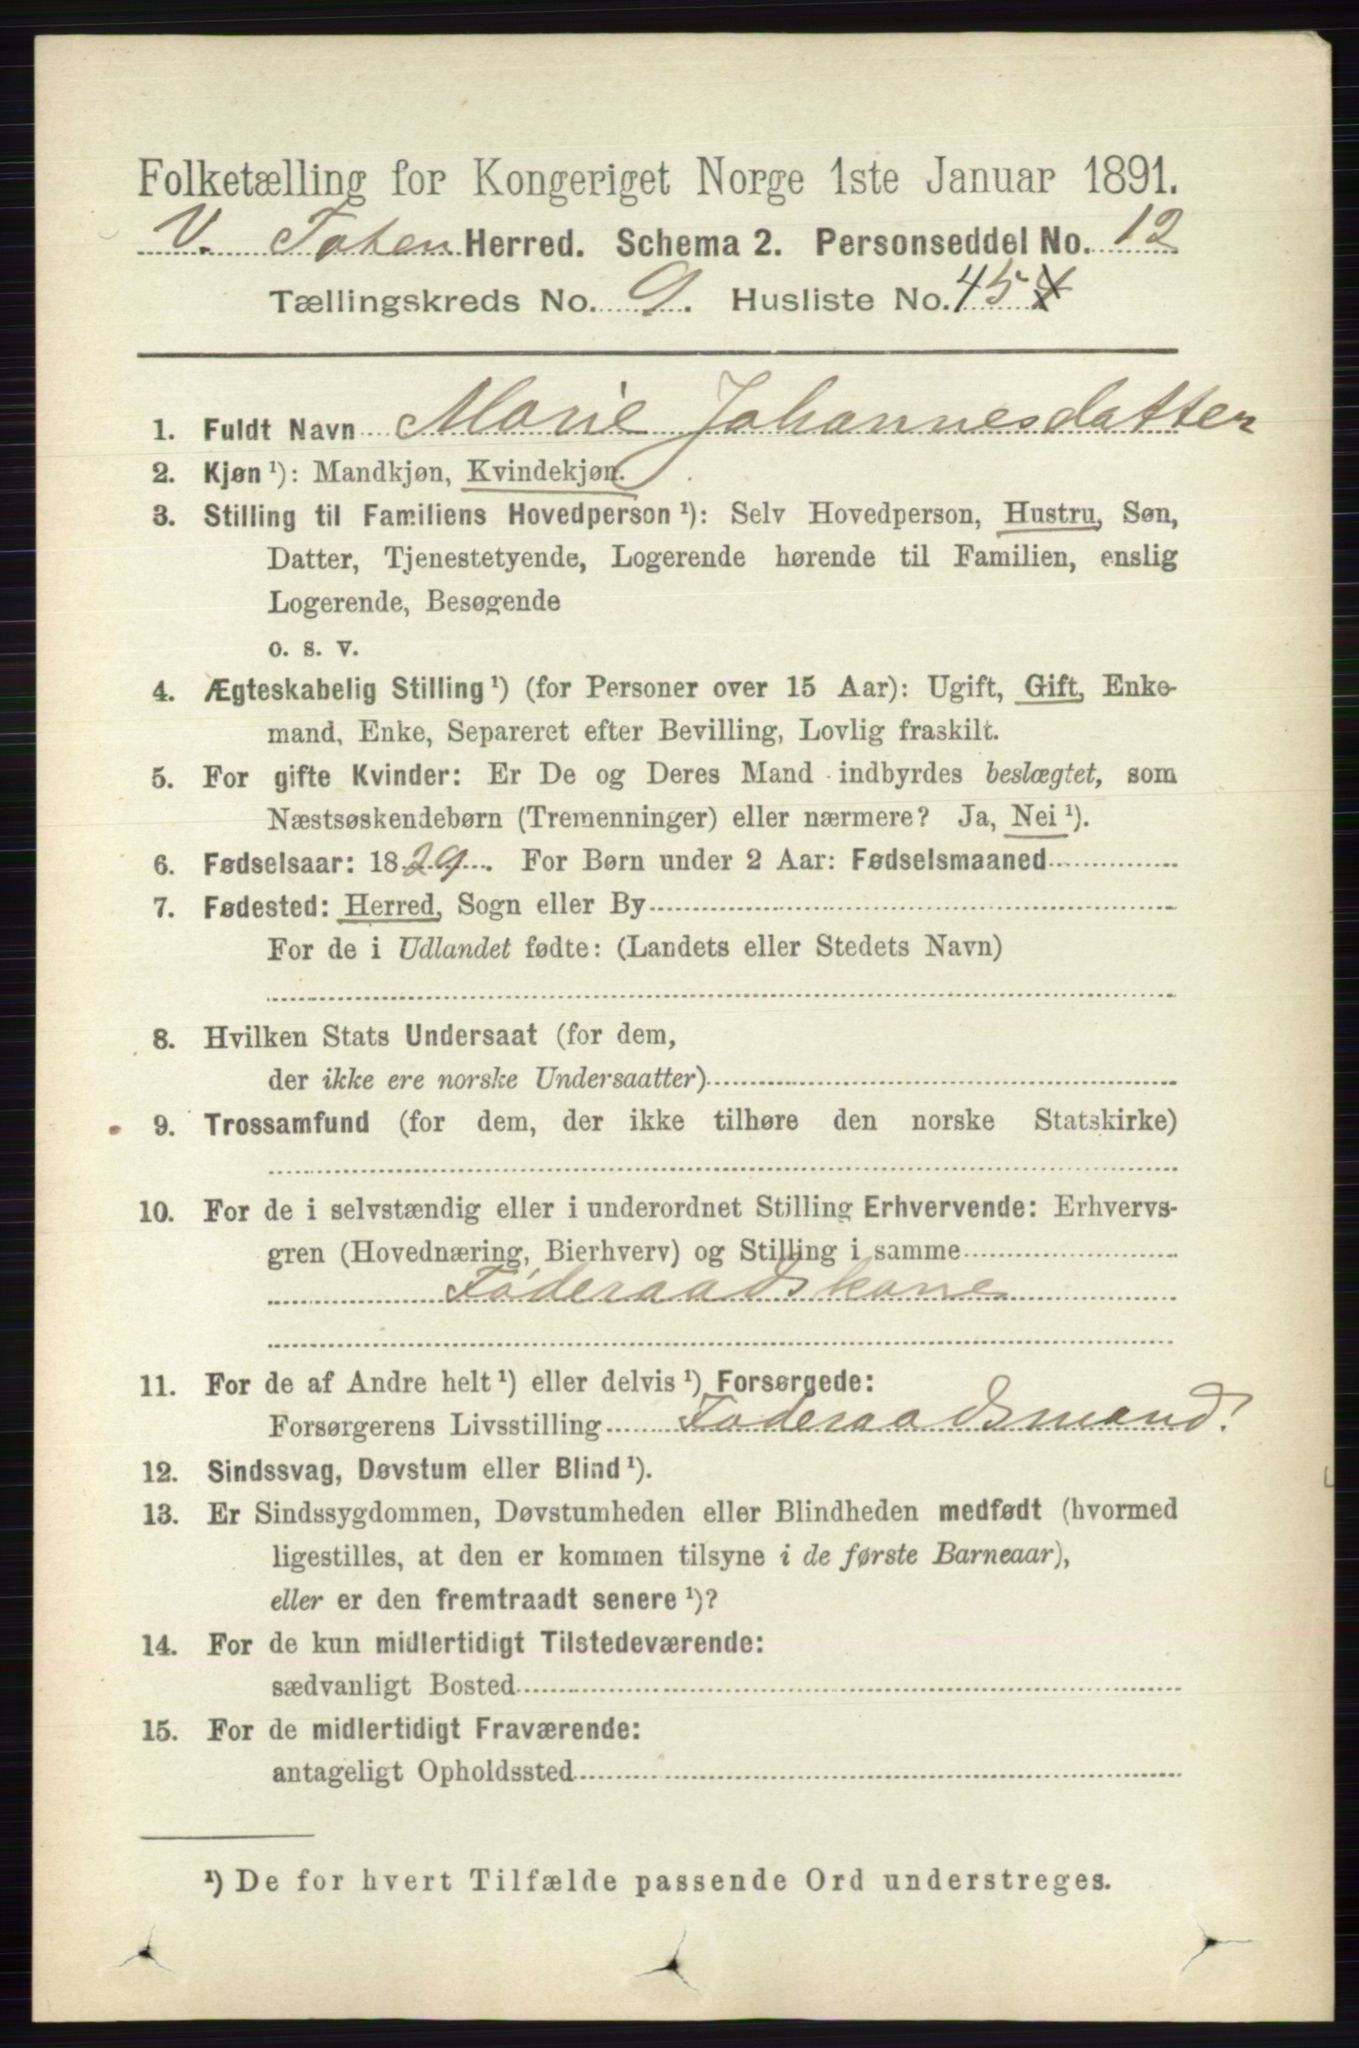 Folketælling for Kongeriget Norge 1ste Januar 1891.
V. Toten Herred. Schema 2. Personseddel No. 12
Tællingskreds No. 9. Husliste No. 45
1. Fuldt Navn Marie Johannesdatter
2. Kjøn ¹): Mandkjøn, Kvindekjøn.
3. Stilling til Familiens Hovedperson ¹): Selv Hovedperson, Hustru, Søn,
Datter, Tjenestetyende, Logerende hørende til Familien, enslig
Logerende, Besøgende
o. s. v.
4. Ægteskabelig Stilling ¹) (for Personer over 15 Aar): Ugift, Gift, Enke-
mand, Enke, Separeret efter Bevilling, Lovlig fraskilt.
5. For gifte Kvinder: Er De og Deres Mand indbyrdes beslægtet, som
Næstsøskendebørn (Tremenninger) eller nærmere? Ja, Nei ¹).
6. Fødselsaar: 1829. For Børn under 2 Aar: Fødselsmaaned
7. Fødested: Herred, Sogn eller By
For de i Udlandet fødte: (Landets eller Stedets Navn)
8. Hvilken Stats Undersaat (for dem,
der ikke ere norske Undersaatter)
9. Trossamfund (for dem, der ikke tilhøre den norske Statskirke)
10. For de i selvstændig eller i underordnet Stilling Erhvervende: Erhvervs-
gren (Hovednæring, Bierhverv) og Stilling i samme
Føderaadskone
11. For de af Andre helt ¹) eller delvis ¹) Forsørgede:
Forsørgerens Livsstilling Føderaadsmand.
12. Sindssvag, Døvstum eller Blind ¹).
13. Er Sindssygdommen, Døvstumheden eller Blindheden medfødt (hvormed
ligestilles, at den er kommen tilsyne i de første Barneaar),
eller er den fremtraadt senere ¹)?
14. For de kun midlertidigt Tilstedeværende:
sædvanligt Bosted
15. For de midlertidigt Fraværende:
antageligt Opholdssted
¹) De for hvert Tilfælde passende Ord understreges.